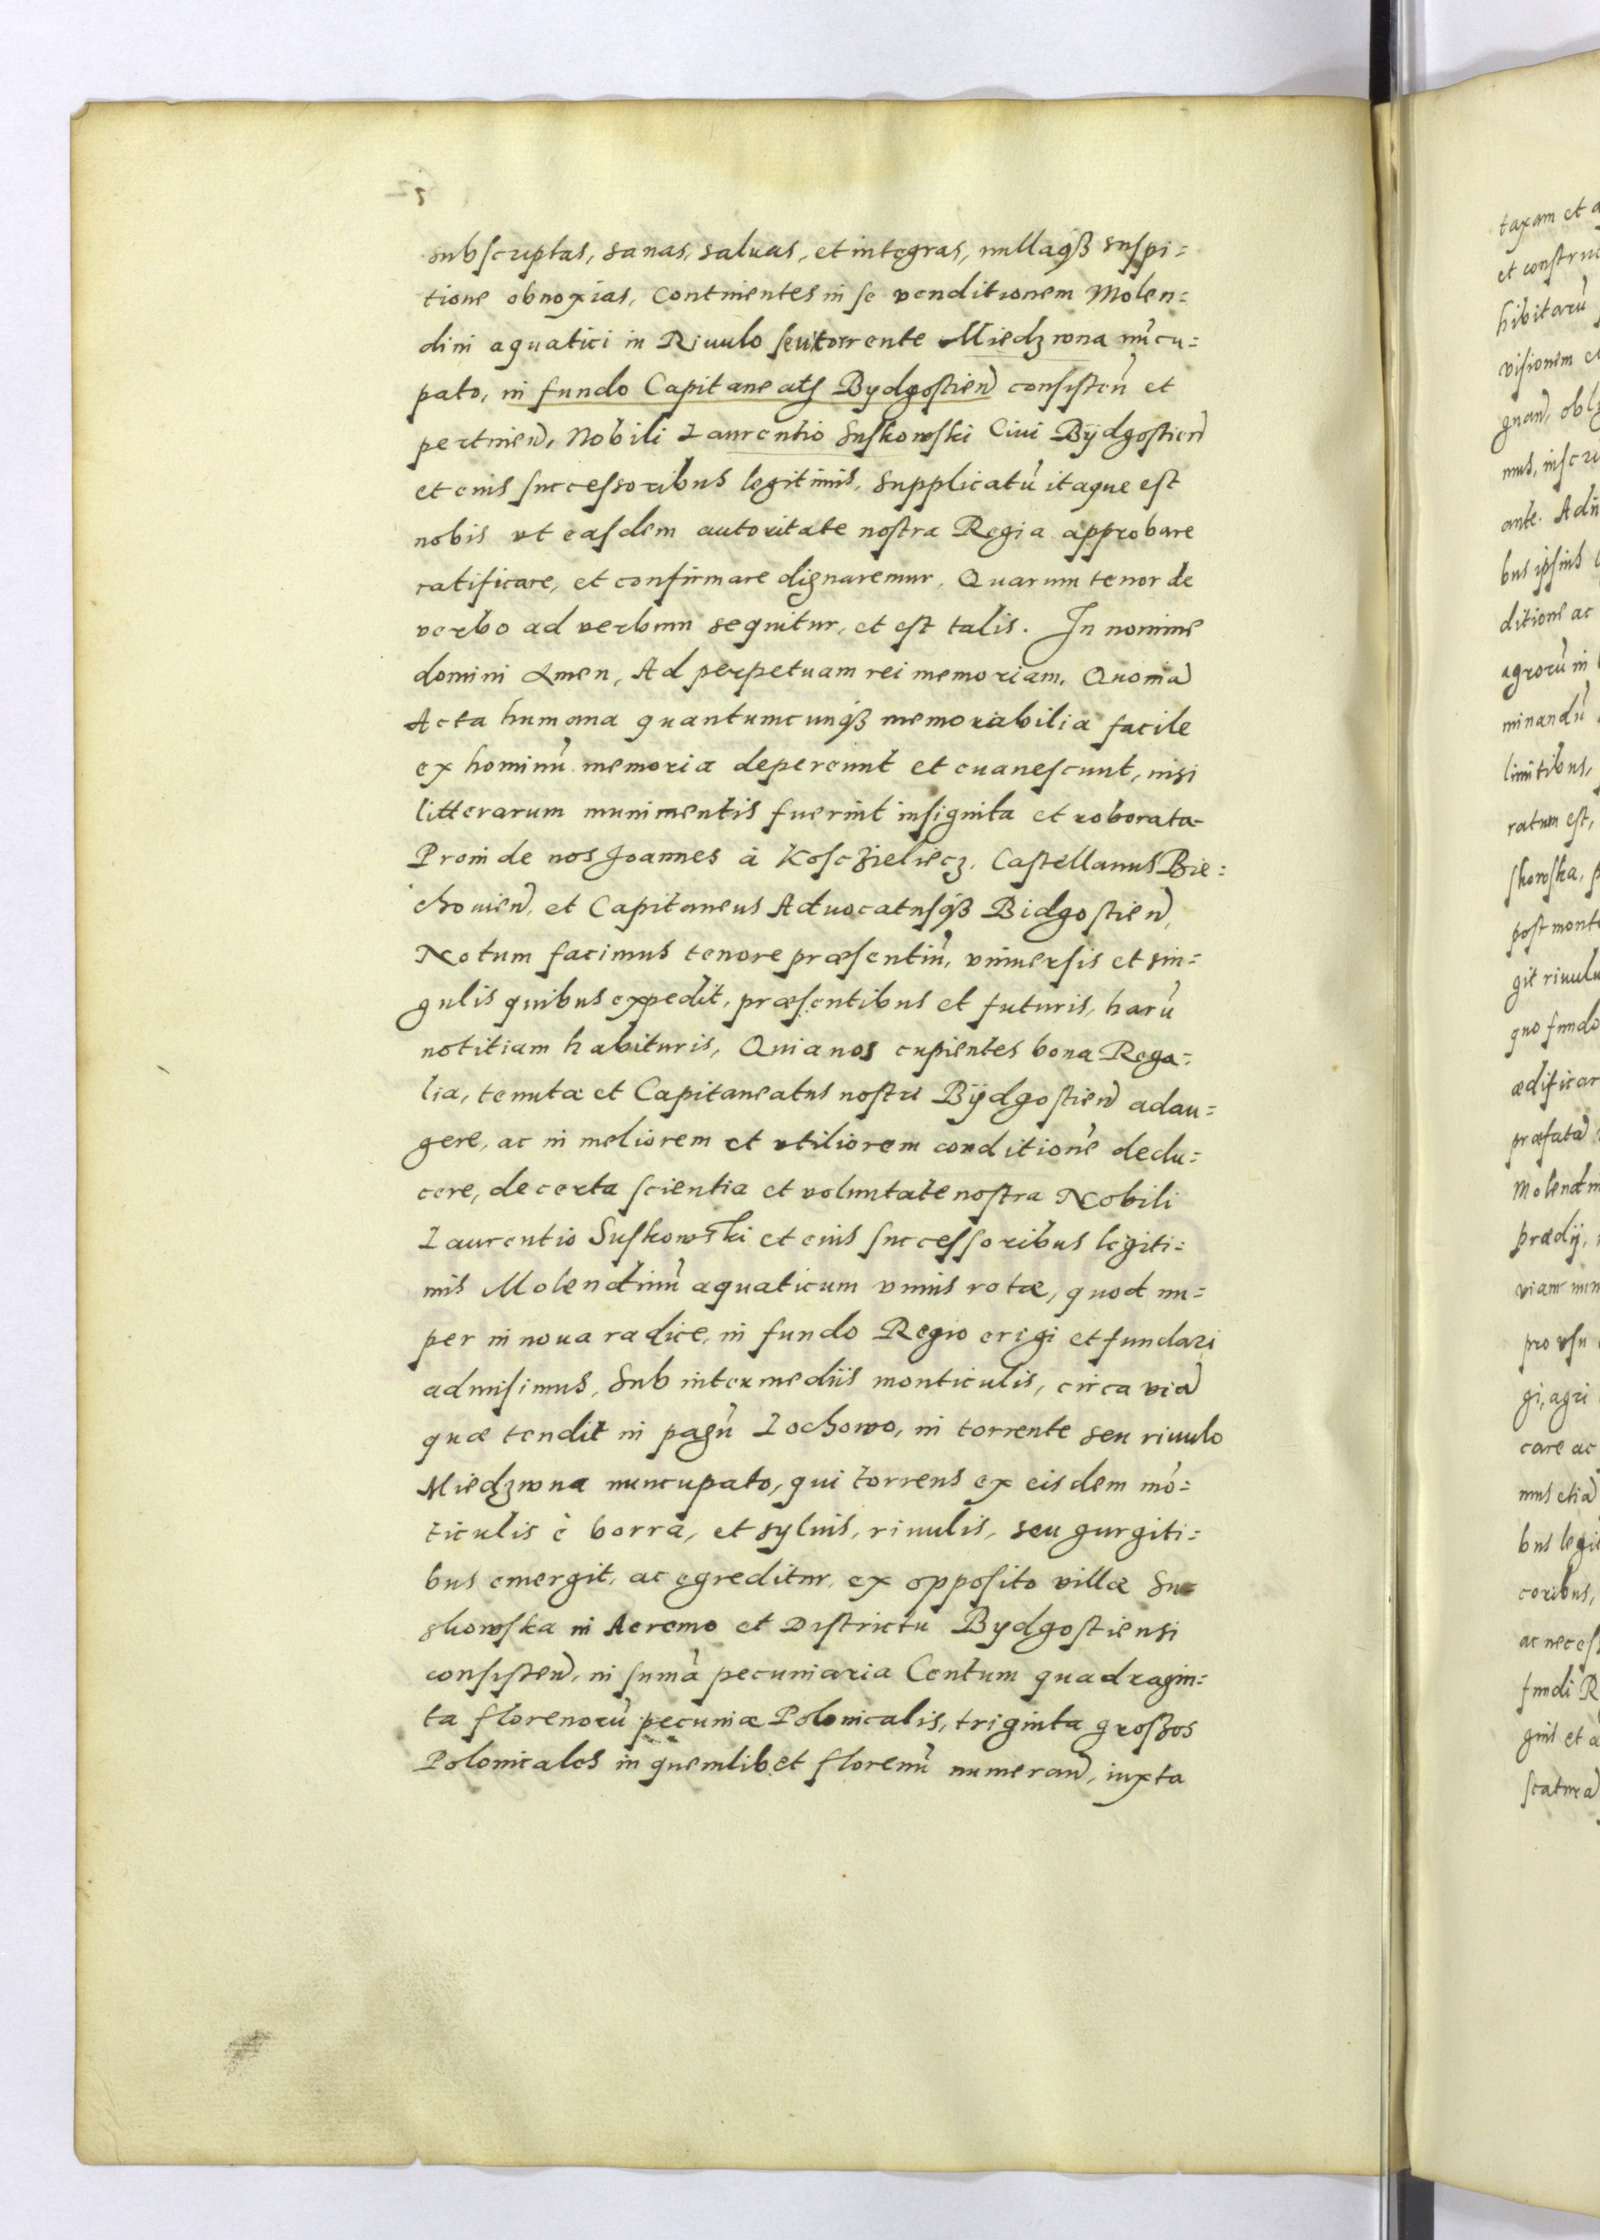 subscriptas, sanas, saluas, et integras, nullaqȝ suspi=
tione obnoxias, Continentes in se venditionem Molen=
dini aquatici in Riuulo seu torrente Miedzwna nūcu=
pato, in fundo Capitaneatȝ Bydgostien̄ consisten̄ et
pertinen̄, Nobili Laurentio Suskowski Ciui Bÿdgostien̄
et eius successoribus legitimis, Supplicatū itaque est
nobis vt easdem autoritate nostra Regia approbare
ratificare, et confirmare dignaremur, Quarum tenor de
verbo ad verbum sequitur, et est talis. In nomine
domini Amen, Ad perpetuam rei memoriam, Quonia̅
Acta humana quantumcunqȝ memorabilia facile
ex hominū memoria depereunt et euanescunt, nisi
litterarum munimentis fuerint insignita et roborata
Proinde nos Joannes à Kosczieliecz, Castellanus Bie=
chouien̄, et Capitaneus Aduocatusqȝ Bidgostien̄,
Notum facimus tenore præsentiū, vniuersis et sin=
gulis quibus expedit, præsentibus et futuris, harū
notitiam habituris, Quia nos cupientes bona Rega=
lia, tenutæ et Capitaneatus nostri Bÿdgostien̄ adau=
gere, ac in meliorem et vtiliorem conditionē dedu=
cere, de certa scientia et voluntate nostra Nobili
Laurentio Suskowski et eius successoribus legiti=
mis Molendinū aquaticum vnius rotæ, quod nu=
per in noua radice, in fundo Regio erigi et fundari
admisimus, Sub intermediis monticulis, circa via̅
quæ tendit in pagū Lochowo, in torrente seu riuulo
Miedzwna nuncupato, qui torrens ex eisdem mō=
ticulis è borra, et syluis, riuulis, seu gurgiti=
bus emergit, ac egreditur, ex opposito villæ Su=
skowska in Aeremo et Districtu Bydgostiensi
consisten̄, in sum̄a pecuniaria Centum quadragin=
ta florenorū pecuniæ Polonicalis, triginta grossos
Polonicales in quemlibet florenū numeran̄, iuxta
taxam et a
et constru
hibitarū
visionem
gnan̄, obl
mus, inscri
ante. Ad
bus ipsius
ditione ac
agrorū in
minandū
limitibus,
ratum est,
skowska, p
post mont
git riuulu
quo fundo
ædificar
præfata̅
Molendin
prædij,
viam
pro vsu
gi, agri
care ac
mus etia̅
bus legi
coribus,
ac necess
fundi R
gnis et